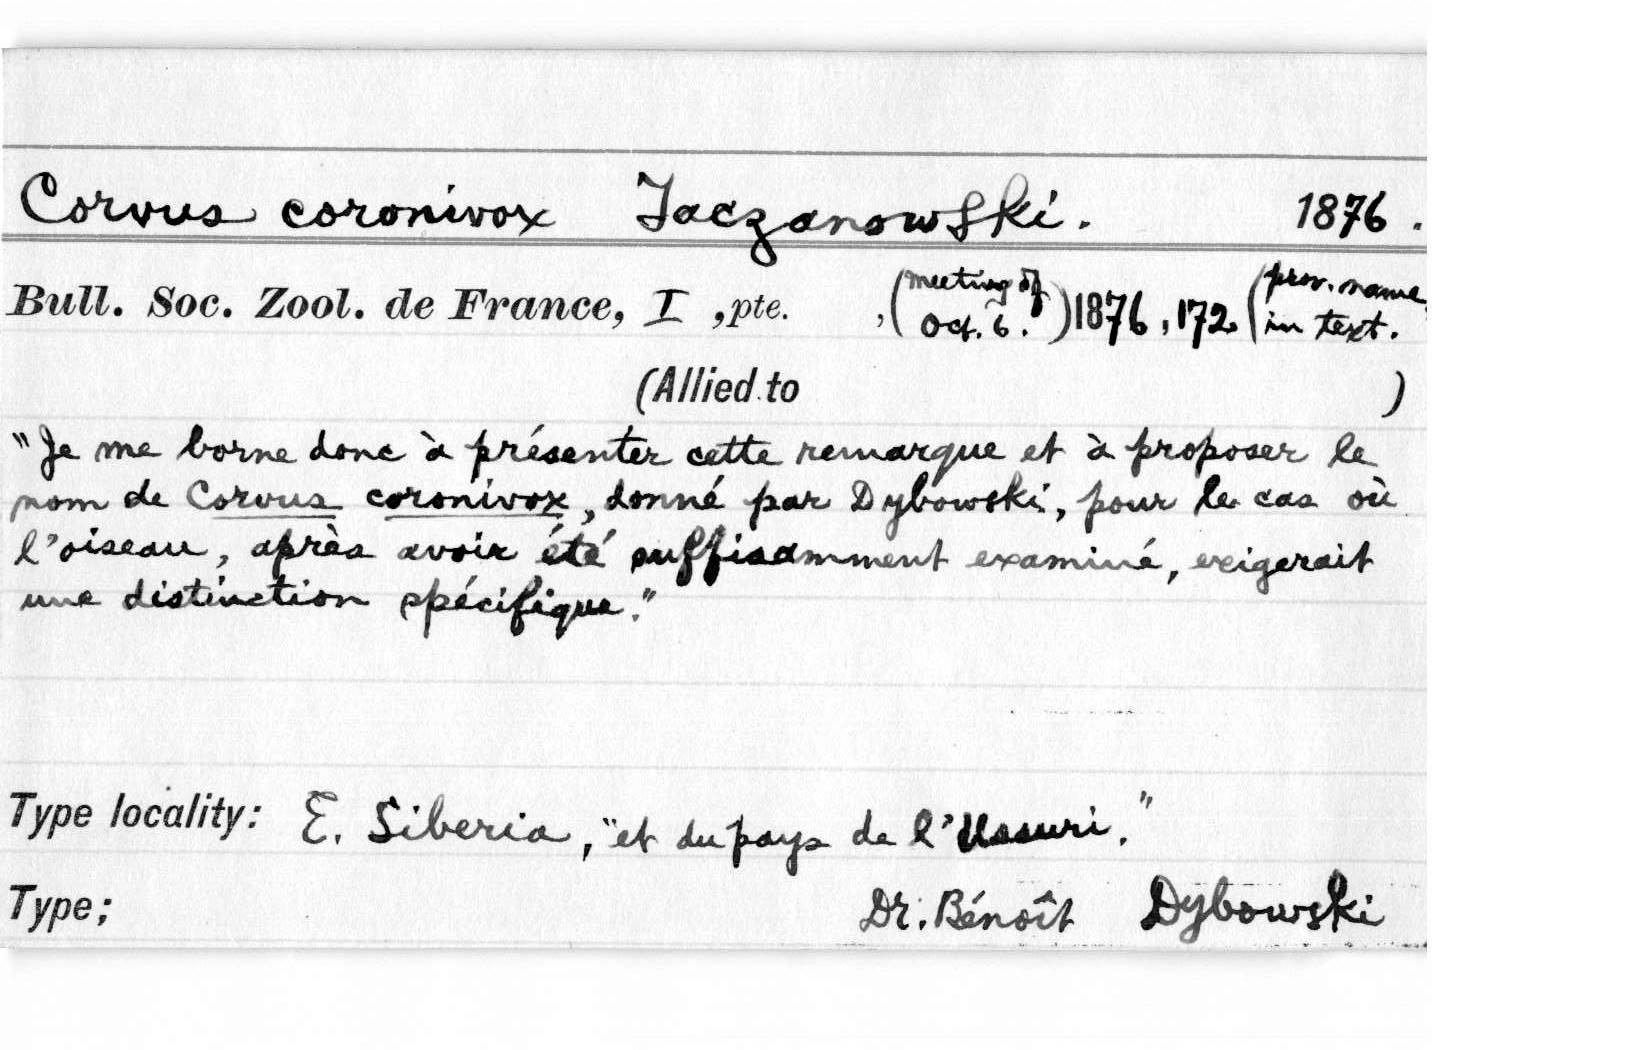 Corvus coronivox Taczanowski. 1876.
Bull. Soc. Zool. de France, I, pte. , (meeting of Oct. 6.) 1876, 172 (prov. name in text.
(Allied to )
"Je me borne donc à présenter cette remarque et à proposer le
nom de Corvus coronivox, donné par Dybowski, pour le cas où
l'oiseau, après avoir été suffisamment examiné, exigerait
une distinction spécifique."
Type locality: E. Siberia, "et du pays de l'Ussuri."
Type; Dr. Bénoît Dybowski